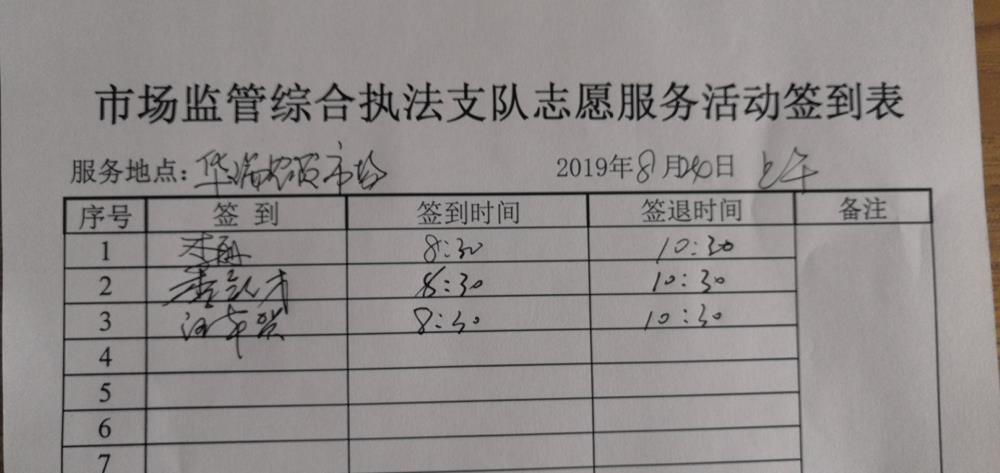 市场监管综合执法支队志愿服务活动签到表
服务地点:华瑞农贸市场 2019年8月20日 上午
序号 签到 签到时间 签退时间 备注
1 8:30 10:30
2 8:30 10:30
3 8:30 10:30
4
5
6
7